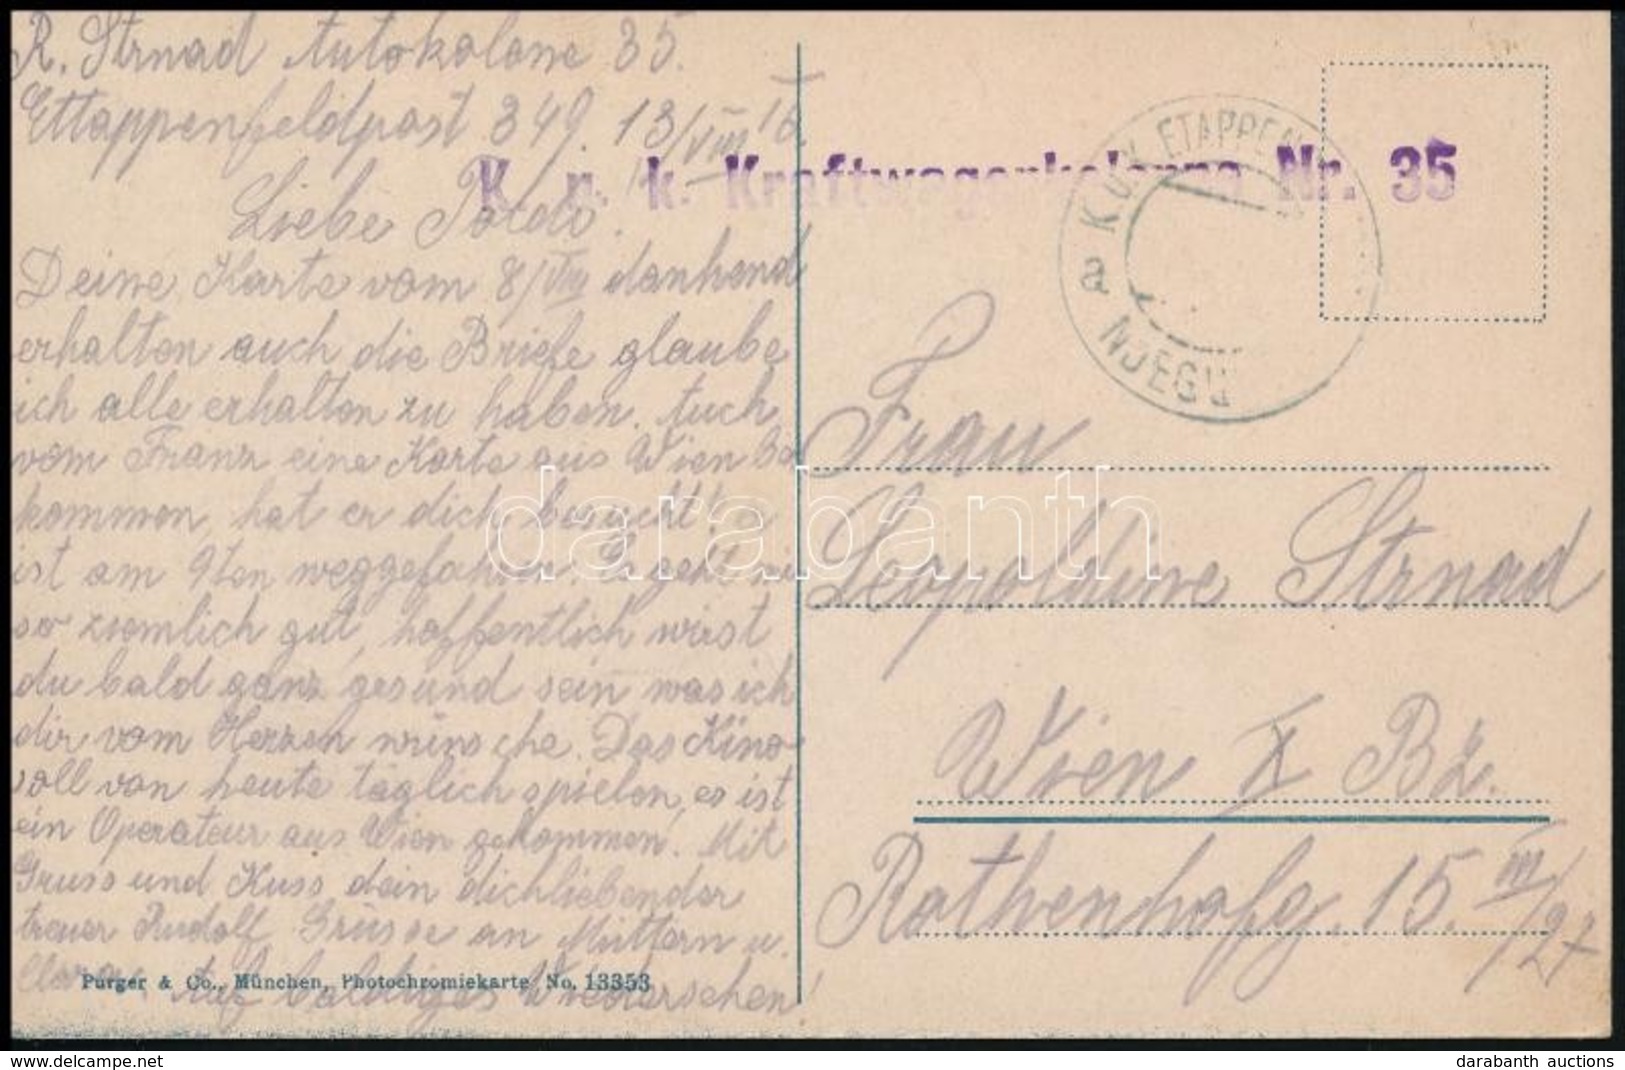 R. Strnad Autokolone 35.
Ettappenfeldpost 349. 13/VIII 16.
K. u. k. Kraftwagenkolonne Nr. 35
K. u. K. ETAPPEN
a
NJEGU
Liebe Poldi!
Deine Karte vom 8/VIII dankend
erhalten auch die Briefe glaube
ich alle erhalten zu haben. Auch
vom Franz eine Karte aus Wien be
kommen, hat er dich besucht? er
ist am 9ten weggefahren. Es geht mir
so ziemlich gut, hoffentlich wirst
du bald ganz gesund sein was ich
dir vom Herzen wünsche. Das Kino
soll von heute täglich spielen, es ist
ein Operateur aus Wien gekommen. Mit
Gruss und Kuss dein dichliebender
treuer Rudolf. Grüsse an Muttern u.
Auf baldiges Wiedersehen!
Purger & Co., München, Photochromiekarte No. 13353
Frau
Leopoldine Strnad
Wien X Bz.
Rothenhofg. 15. III/27
darabanth
darabanth auctions